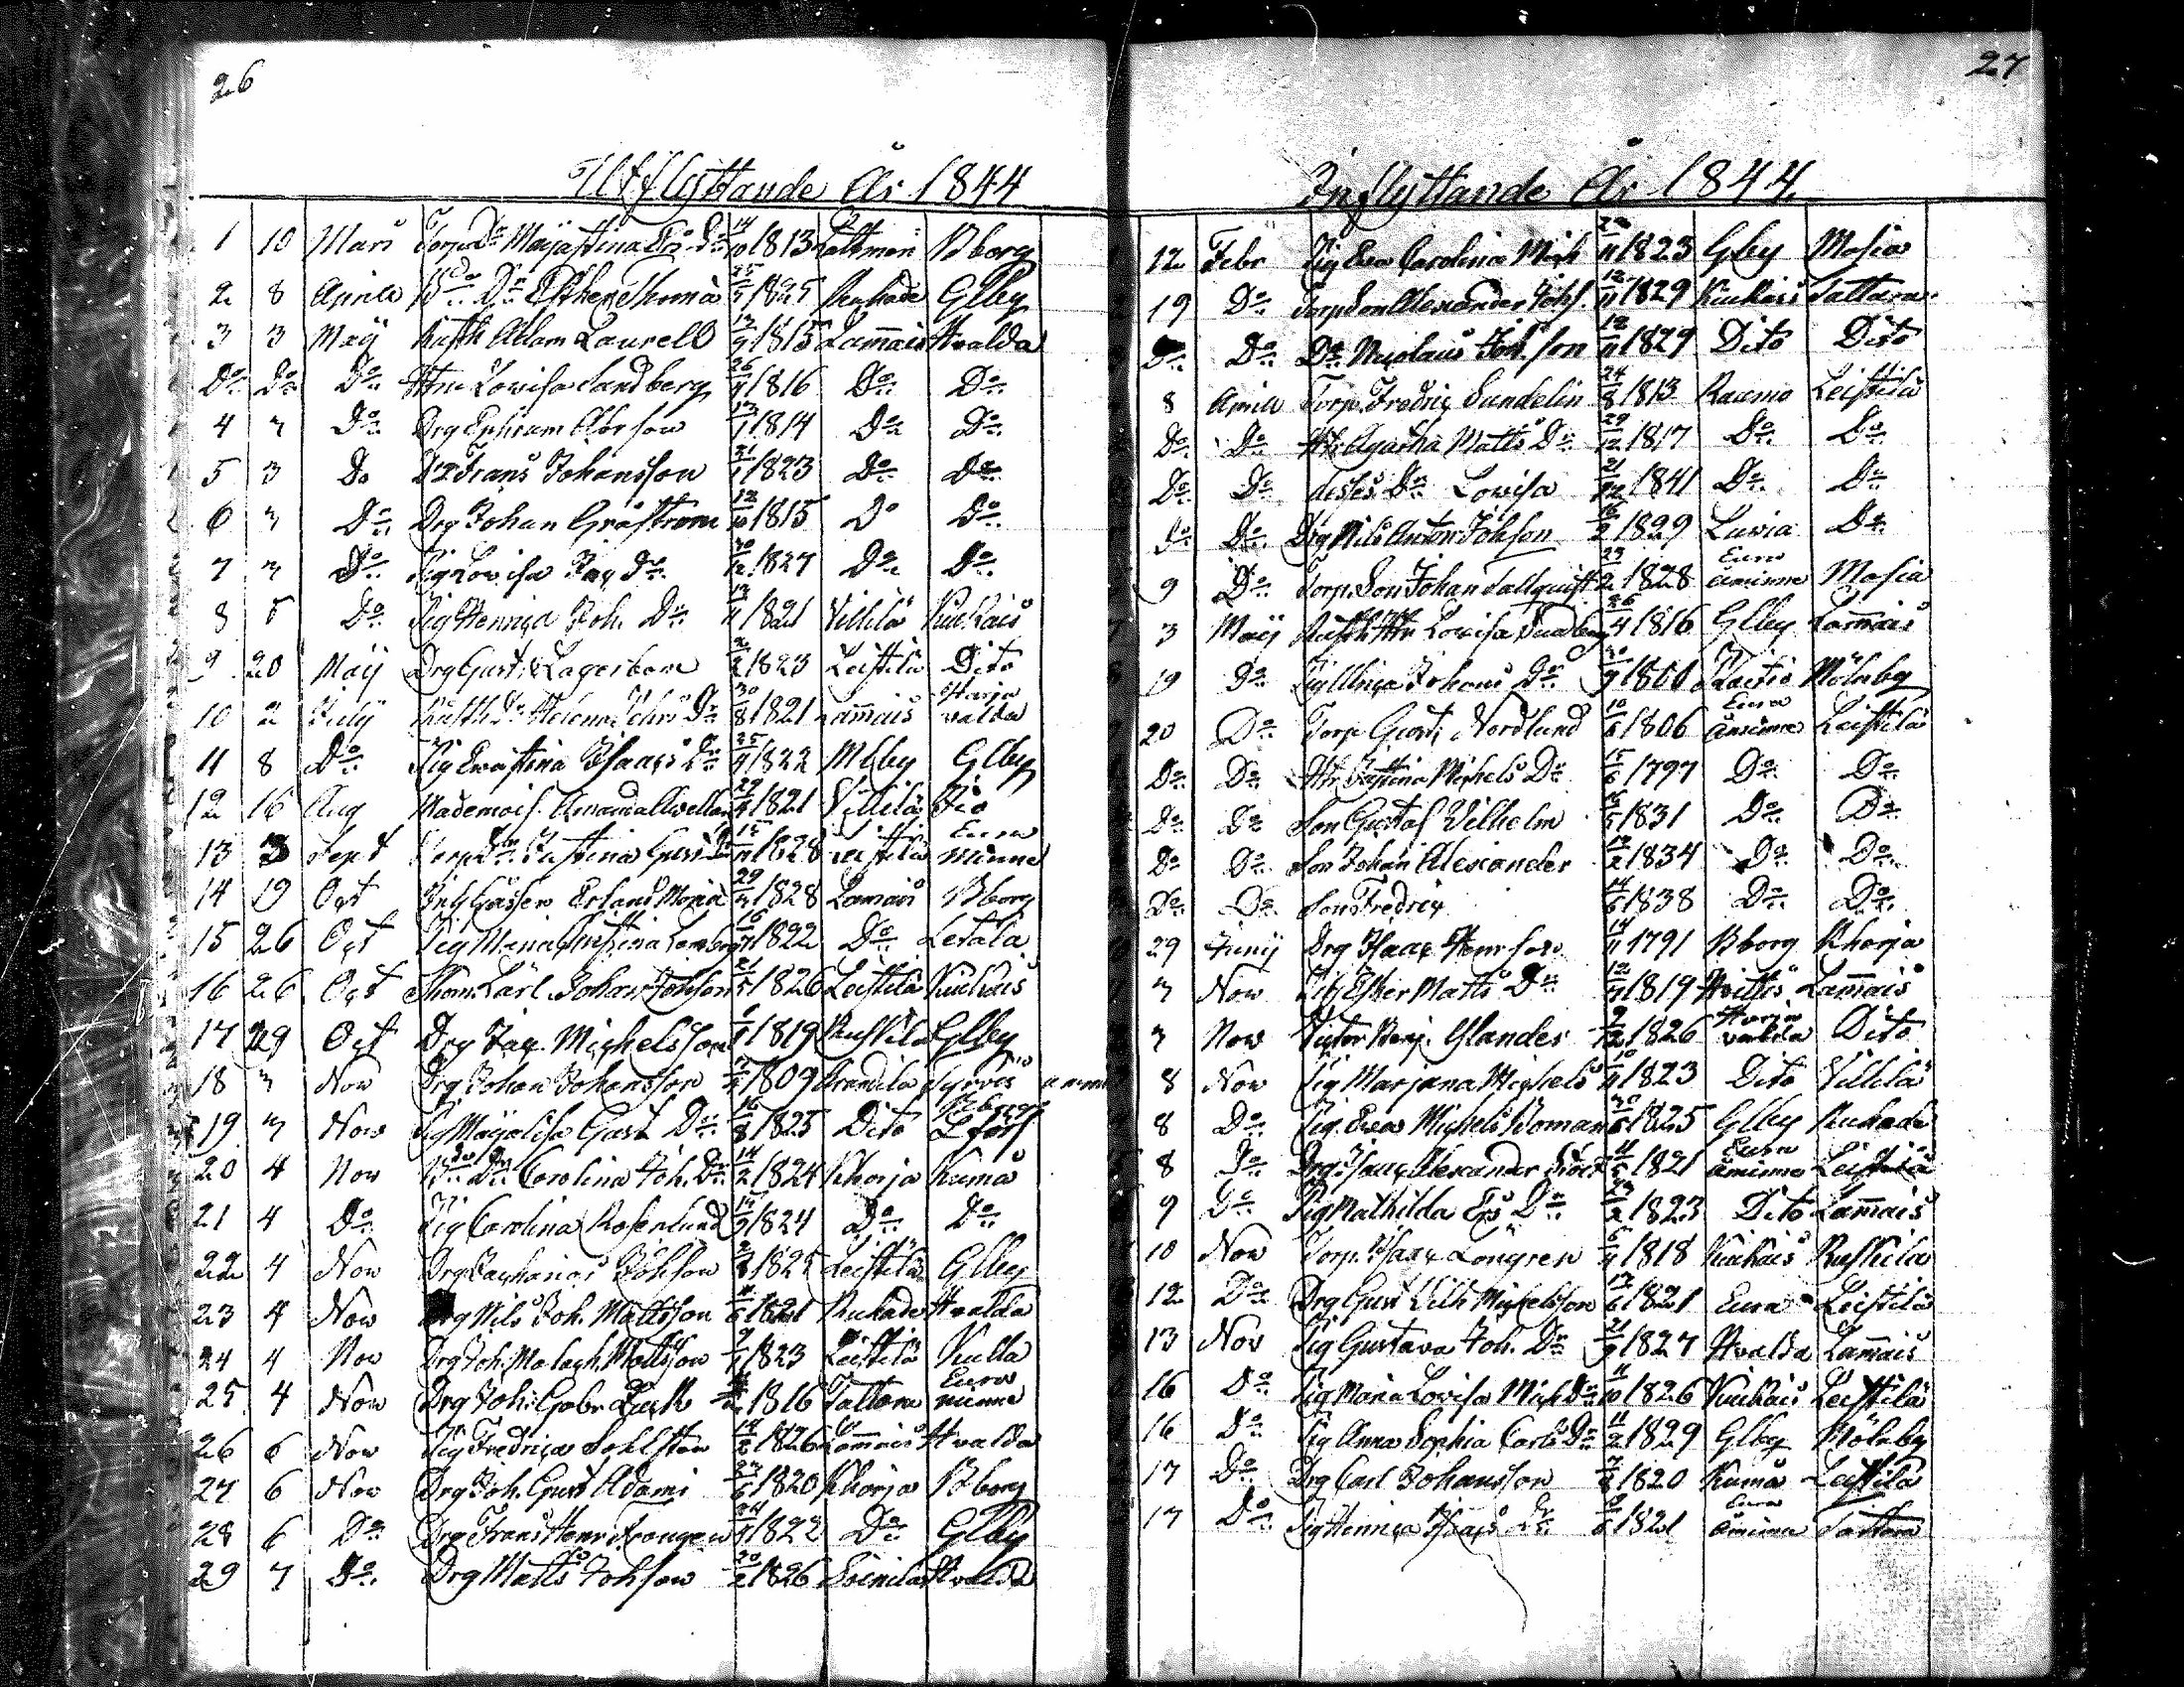 26
Utflyttande År 1844
1 10 Mars Torp Dr Majastina Dr 10 1813 Bborg
2 8 Aprill Dr Esther Thoma 1825 Ruhade Glby
3 3 Maij Kusk Adam Laurell 13 1815 Lammais Hvalda
Do Do Do Hru Lovisa Sandberg 26 1816 Do Do
4 3 Do Drg Ephraim Abrson 1814 Do Do
5 3 Do Drg Frans Johansson 21 1823 Do Do
6 3 Do Drg Johan Gråström 12 10 1815 Do Do
7 3 Do Pig Lovisa Dr 30 12 1827 Do Do
8 5 Do Pig Henrica Joh. Dr 13 11 1821 Villilä Kiukais
9 20 Maij Drg Gust. Lagerbom 2 1823 Leistilä Dito
10 2 Julij Helena Johs Dr 30 8 1821 Lammais Harja valda
11 8 Do Pig Isaacs Dr 25 1822 Mlby Glby
12 16 Aug Mademois. Amanda 29 1821 Villilä
13 3 Sept Torp Dr Justina Gust. Dr 15 11 1828 Leistila Eura minne
14 19 Oct Erland 29 1828 Lamais Bborg
15 26 Oct Pig Maria Christina 16 1822 Do Letala
16 26 Oct Carl Johan Johsson 21 1826 Leistilä Kiukais
17 29 Oct Drg Jac. Michelsson 1819 Ruskila Glby
18 3 Nov Drg Johan Johansson 1809
19 3 Nov Pig Majalisa Gust Dr 16 8 1825 Dito
20 4 Nov Dr Carolina Joh. Dr 14 2 1824 Kharja Kumå
21 4 Do Pig Carolina Rosenlund 15 9 1824 Do Do
22 4 Nov Drg Zacharias Johsson 1825 Leistila Glby
23 4 Nov Drg Nils Joh. Mattsson 6 1821 Ruhade Hvalda
24 4 Nov Drg Joh. Malach. Mattsson 1823 Leistilä Kiulla
25 4 Nov Drg Joh. Gabr. 1816 Tattara Eura minne
26 6 Nov Pig Fredrica Sohlsten 14 2 1826 Lammais Hvalda
27 6 Nov Drg Joh. Gust Adami 23 6 1820 Khorja Bborg
28 6 Do Drg Frans Henr. 24 1822 Do Glby
29 7 Do Drg Matts Johsson 20 2 1826 Soinila Hvalda
27
Inflyttande År 1844
12 Febr Pig Eva Carolina Mich 11 1823 Glby Masia
19 Do Torp Son Alexander Johs. 12 11 1829 Kiukais Tattara
Do Do Do Nicolaus Johsson 12 11 1829 Dito Dito
8 Aprill Torp. Fredric Sundelin 24 8 1813 Raumo Leistilä
Do Do Hu Agatha Matts Dr 29 12 1817 Do Do
Do Do desses Dr Lovisa 21 12 1841 Do Do
Do Do Drg Nils Anton Johsson 16 2 1829 Luvia Do
9 Do Torp. Son Johan Sallqvist 23 2 1828 Eura åminne Masia
3 Maij Kusk Hu Lovisa Sandberg 26 4 1816 Glby Lammais
19 Do Pig Ulrica Johans Dr 30 9 Mölnby
20 Do Torp Gust. Nordlund 10 6 1806 Eura åminne Leistilä
Do Do Hu Justina Michels Dr 15 6 1797 Do Do
Do Do Son Gustaf Vilhelm 5 1831 Do Do
Do Do Son Johan Alexander 12 2 1834 Do Do
Do Do Son Fredric 14 6 1838 Do Do
29 Junij Drg Isaac Henrson 19 11 1791 Bborg Khorja
3 Nov Pig Ester Matts Dr 12 1819 Hvittis Lammais
3 Nov Victor Benj. Glander 9 12 1826 Harja valda Dito
8 Nov Pig Marjana Michels 10 11 1823 Dito Villilä
8 Do Pig. Eva Michels Boman 30 6 1825 Glby Ruhade
8 Do Drg Isaac Alexander 11 5 1821 Eura åminne Leistilä
9 Do Pig Mathilda Ers Dr 2 1823 Dito Lammais
10 Nov Torp. Isaac Longren 6 1818 Kiukais Ruskila
12 Do Drg Gust Vilh Michelsson 13 6 1821 Eura Leistila
13 Nov Pig Gustava Joh. Dr 21 9 1827 Hvalda Lammais
16 Do Pig Maria Lovisa Mich Dr 11 10 1826 Kiukais Leistilä
16 Do Pig Anna Sophia Carls Dr 11 2 1829 Glby Mölnby
17 Do Drg Carl Johansson 1820 Kumå Leistila
17 Do Pig Henrica Isaacs Dr 6 1821 Eura åminne Tattara